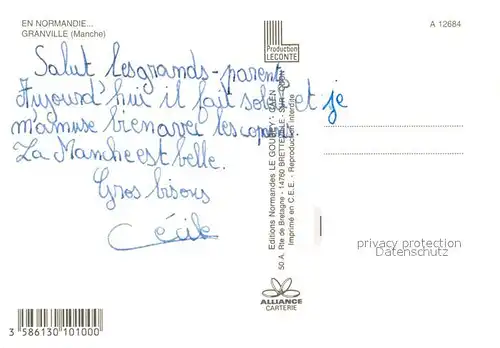 EN NORMANDIE...
GRANVILLE (Manche)
A 12684
Production
LECONTE
Salut les grands-parents
Aujourd'hui il fait soleil et je
m'amuse bien avec les copains.
La Manche est belle.
Gros bisous
Cécile
Editions Normandes LE GOUBEY - CAEN
50 A. Rte de Bretagne - 14760 BRETTEVILLE - SUR - ODON
Imprimé en C.E.E. - Reproduction interdite
privacy protection
Datenschutz
ALLIANCE
CARTERIE
3 586130 101000